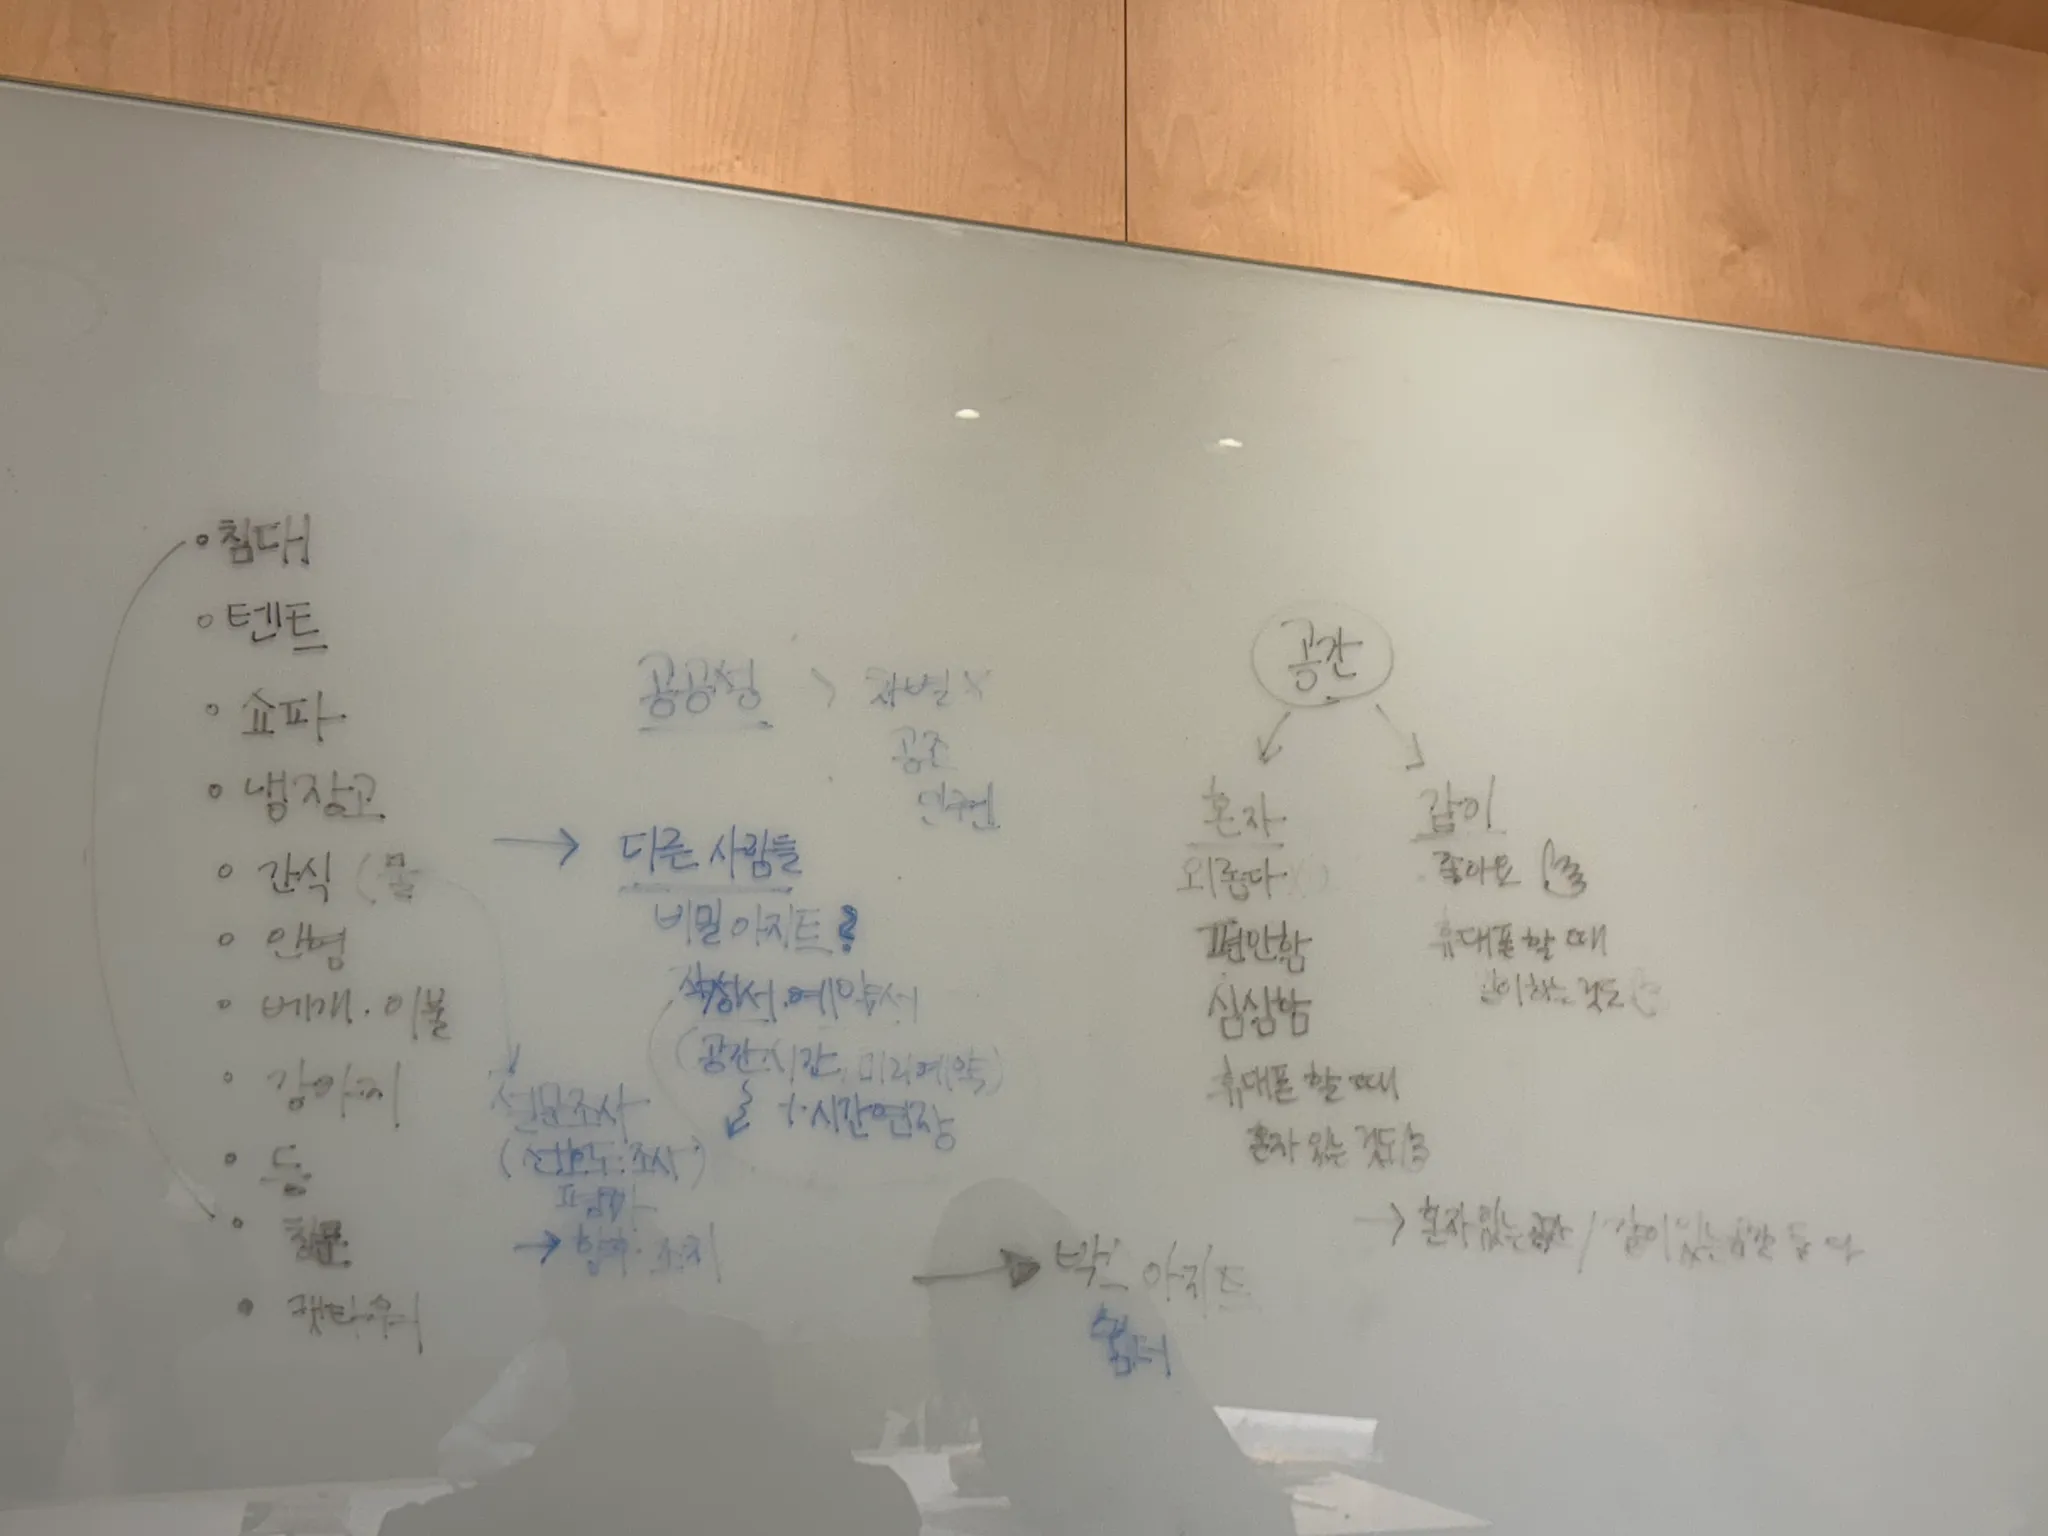 • 침대
• 텐트
• 쇼파
• 냉장고
• 간식 (물
• 인형
• 베개 · 이불
• 강아지
• 등
• 창문
• 캣타워
공공성 > 차별 X
공존
인권
→ 다른 사람들
비밀 아지트?
예약서
(공간·시간, 미리예약)
+시간연장
설문조사
(선호도·조사)
→
→ 박스 아지트
쉼터
공간
혼자
외롭다
편안함
심심함
휴대폰 할 때
혼자 있는 것도
같이
좋아요
휴대폰 할 때
같이하는 것도
→ 혼자 있는 공간 / 같이 있는 공간 둘 다